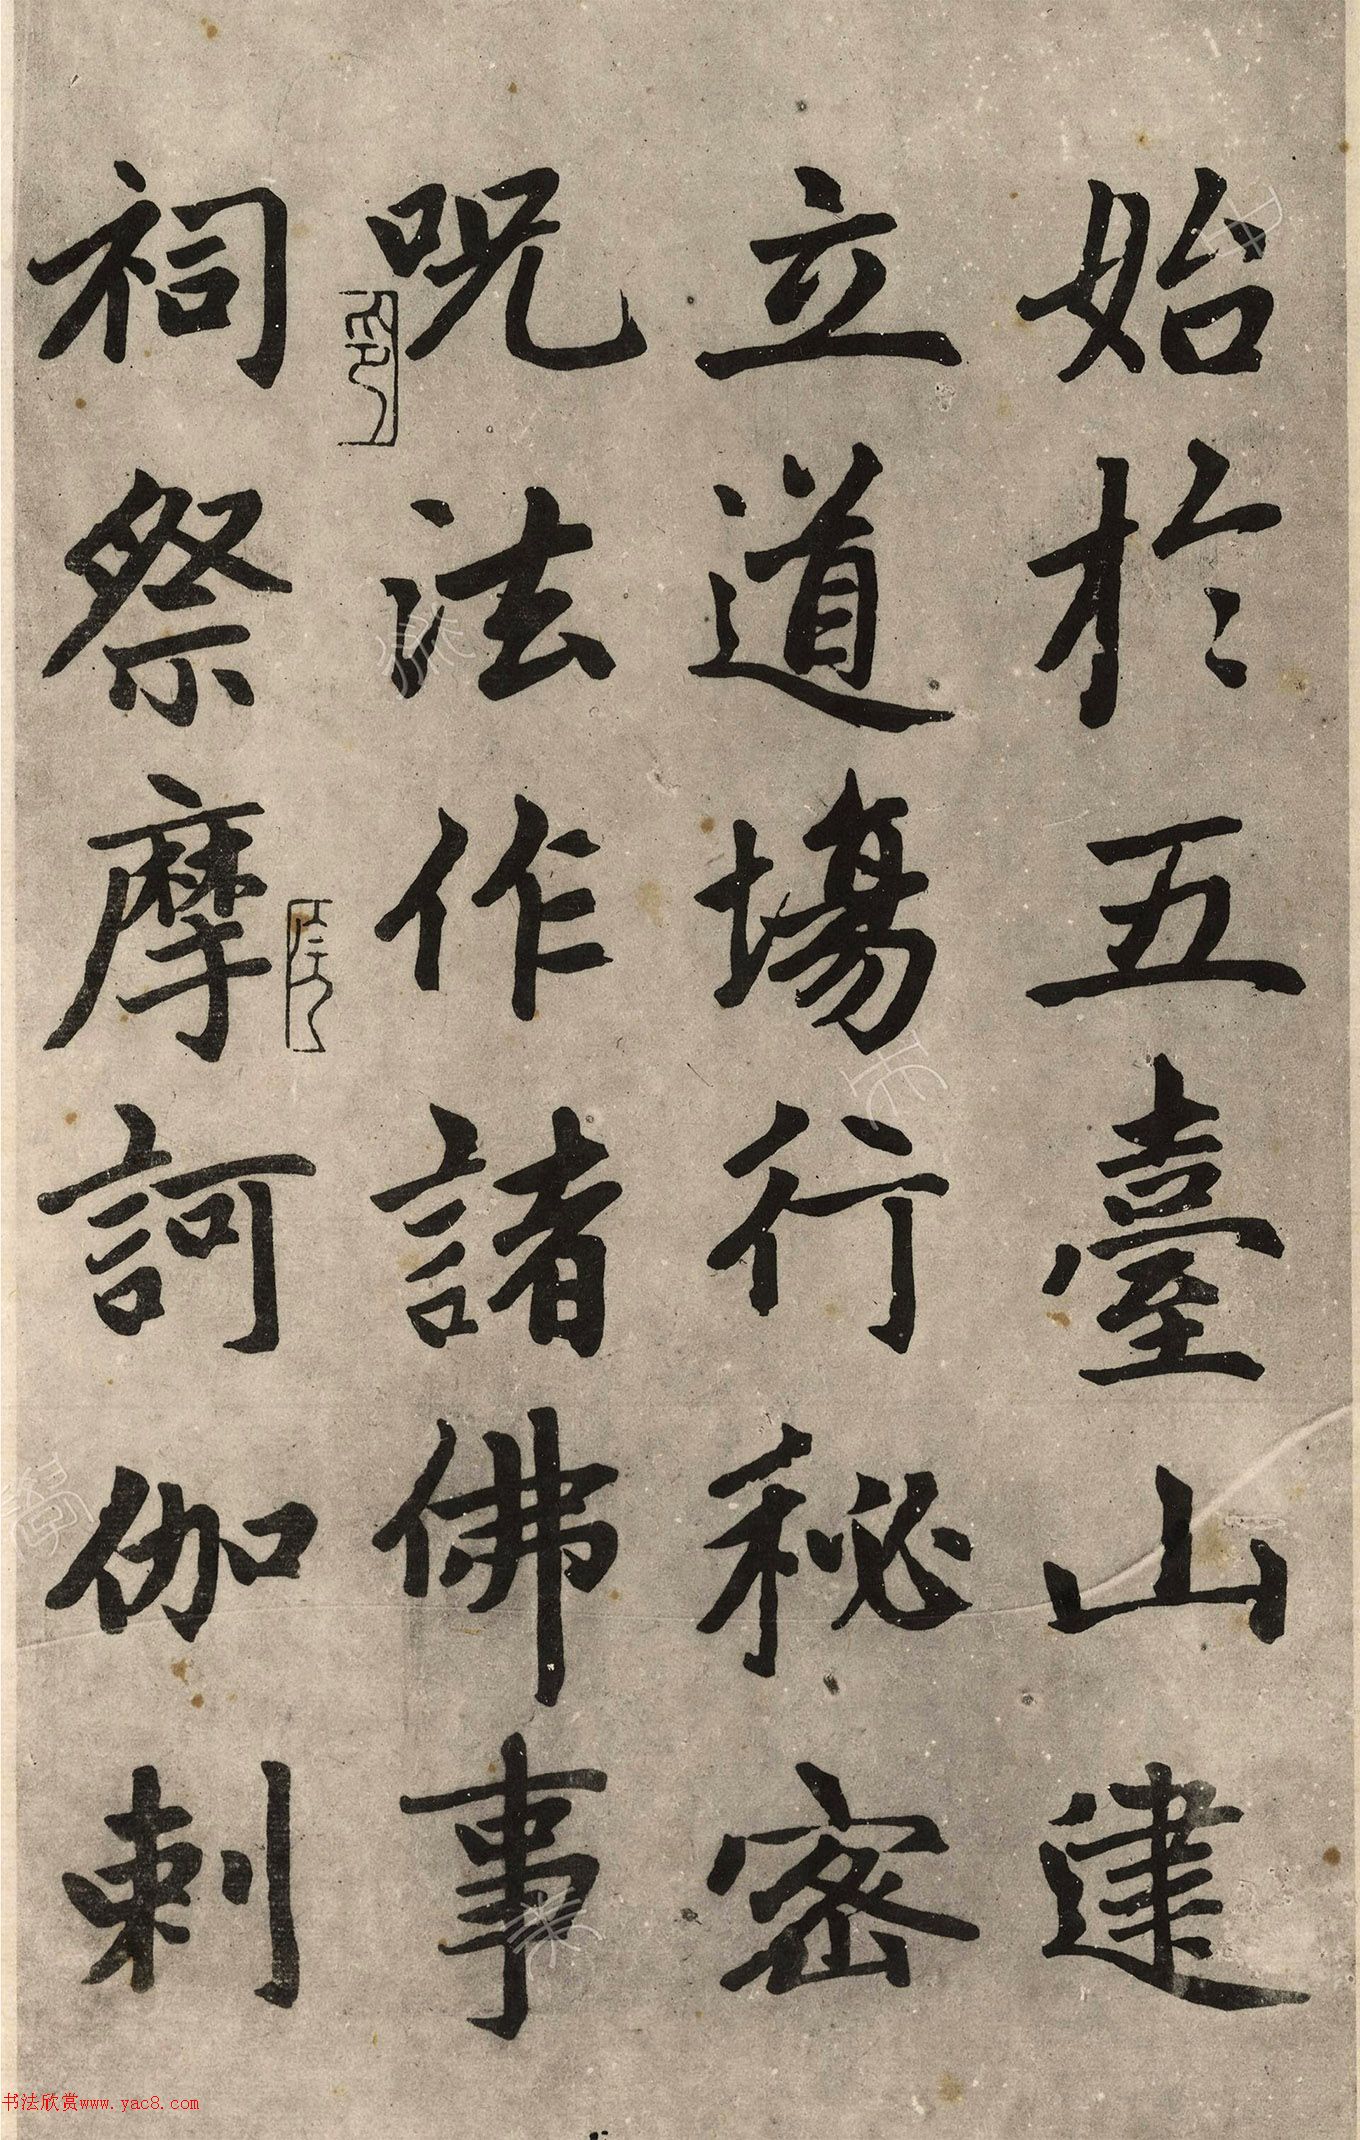 始於五臺山建
立道場行秘密
呪法作諸佛事
祠祭摩訶伽剌
书法欣赏www.yac8.com